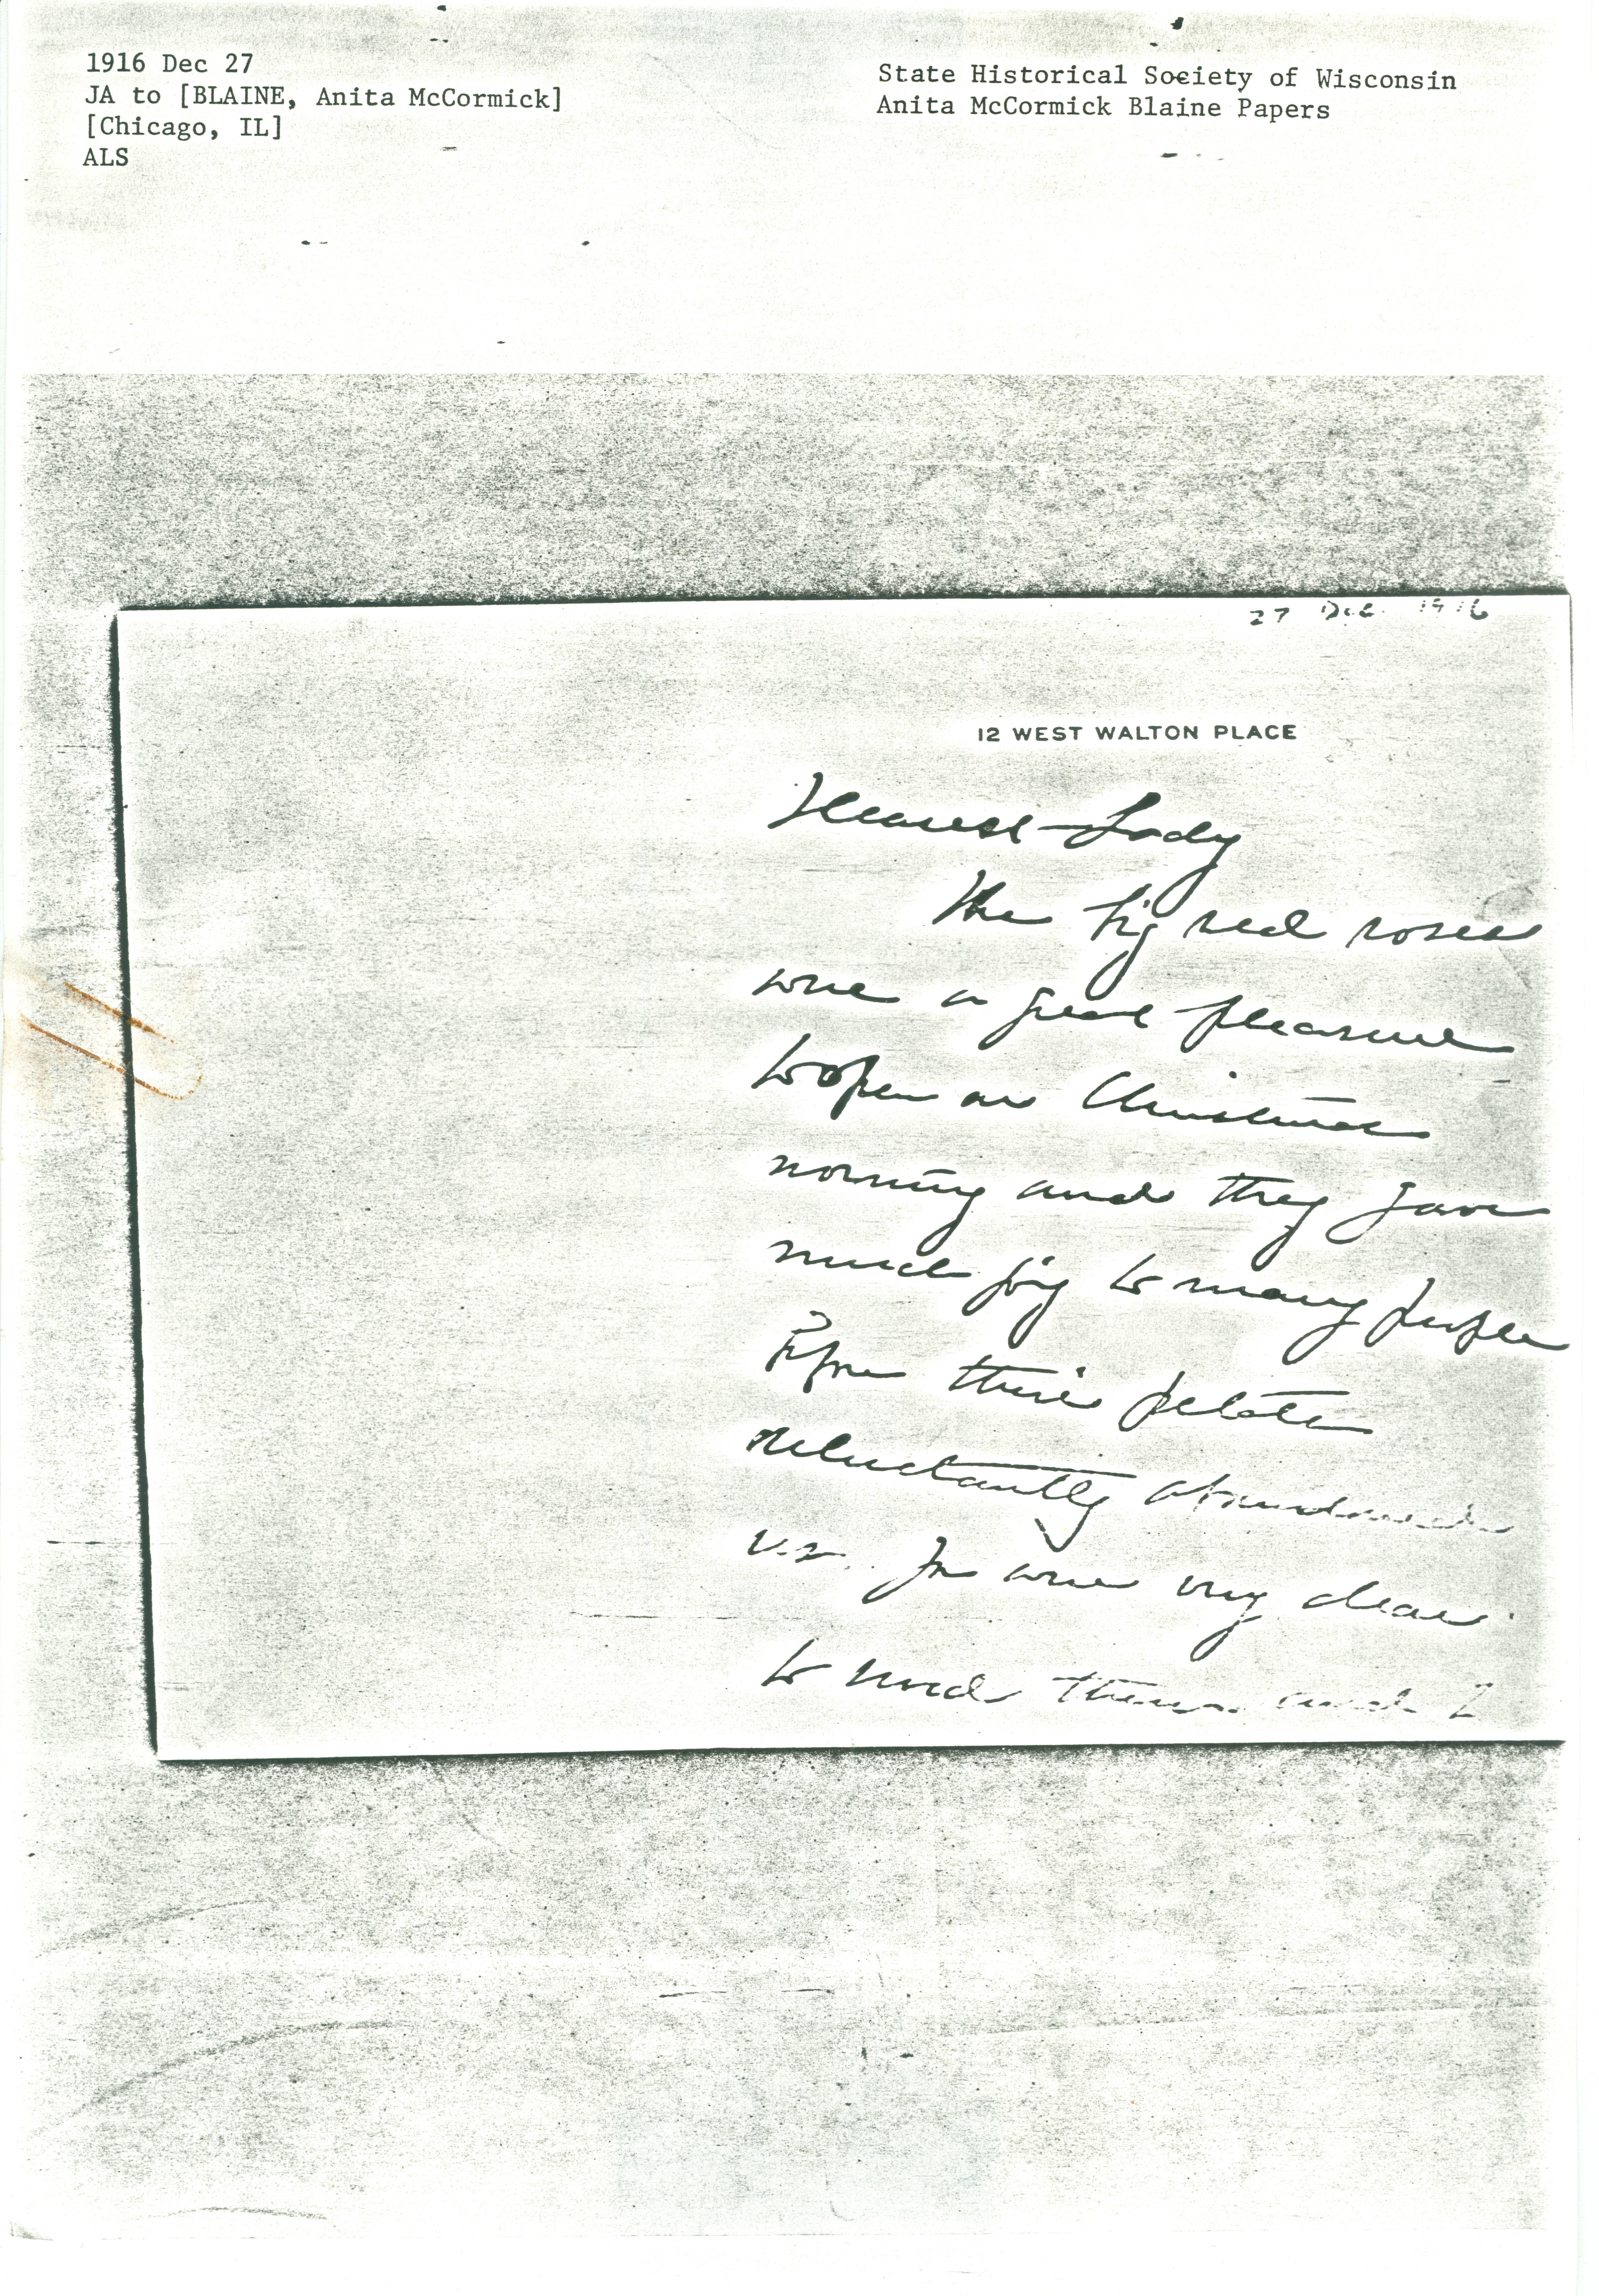 1916 Dec 27
JA to [BLAINE, Anita McCormick]
[Chicago, IL]
ALS
State Historical Society of Wisconsin
Anita McCormick Blaine Papers
27 Dec. 1916
12 WEST WALTON PLACE
Dearest Lady
The big red roses
were a great pleasure
to open on Christmas
morning and they gave
much joy to many people
before their petals
reluctantly abandoned
us. You were very dear
to send them and I